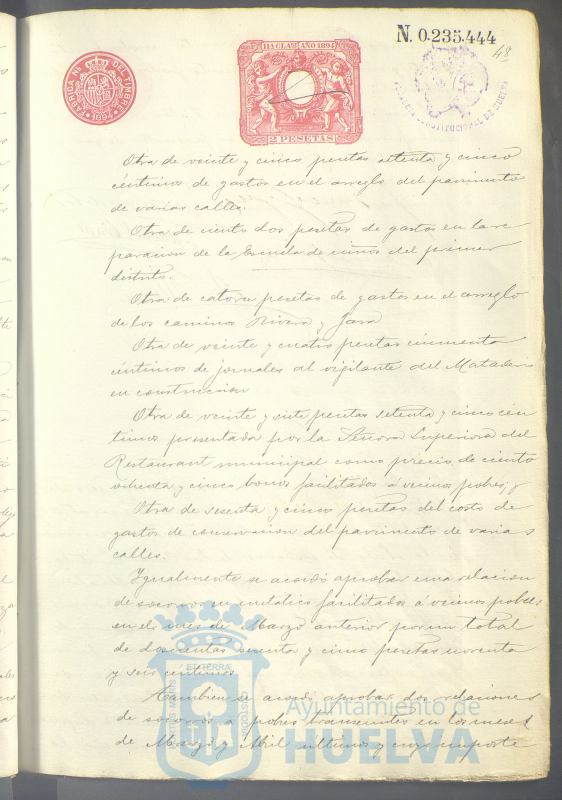 N. 0.235.444
48
HACLAB AÑO 1894
FABRICA NL. DEL TIMBRE
1894
2 PESETAS
CONSTITUCIONAL DE HUELVA
Otra de veinte y cinco pesetas setenta y cinco
céntimos de gastos en el arreglo del pavimento
de varias calles.
Otra de ciento dos pesetas de gastos en la re
paracion de la Escuela de niños del primer
distrito.
Otra de catorce pesetas de gastos en el arreglo
de los caminos Rivera y Jara
Otra de veinte y cuatro pesetas cincuenta
céntimos de jornales al vigilante del Matadero
en construccion
Otra de veinte y siete pesetas setenta y cinco cen
timos presentada por la Señora Superiora del
Restaurant municipal como precio de ciento
ochenta y cinco bonos facilitados á vecinos pobres, y
Otra de sesenta y cinco pesetas del costo de
gastos de conservacion del pavimento de varias
calles.
Igualmente se acordó aprobar una relacion
de socorros en metálico facilitados á vecinos pobres
en el mes de Marzo anterior por un total
de doscientas sesenta y cinco pesetas noventa
y seis centimos
Tambien se acordó aprobar dos relaciones
de socorros a pobres transeuntes en los meses
de Marzo y Abril ultimos y cuyo importe
Ayuntamiento de
HUELVA